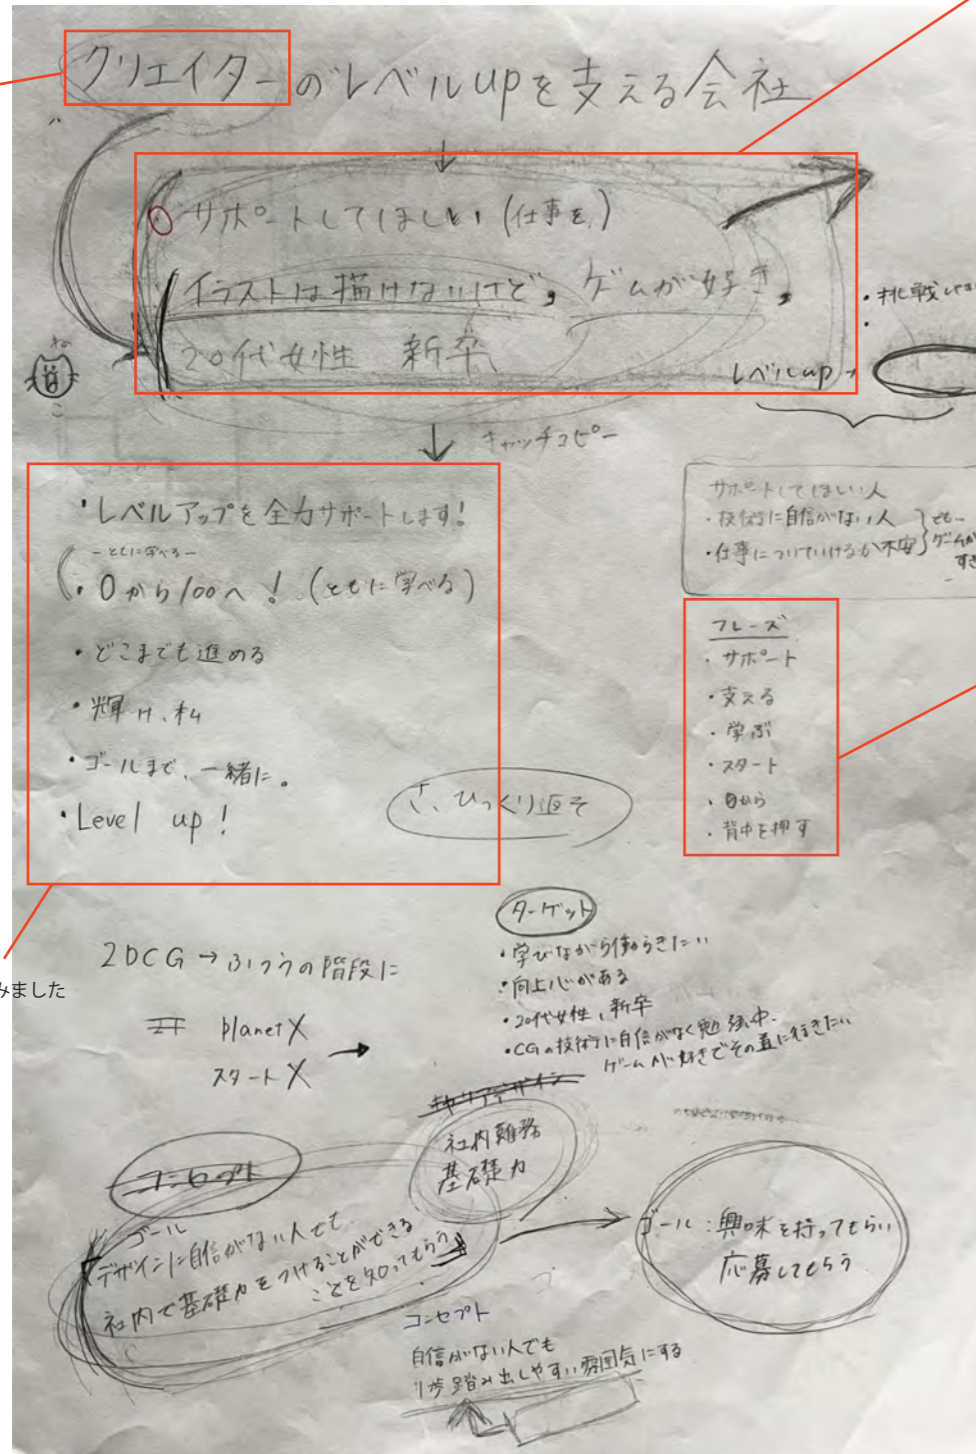 クリエイターのレベルupを支える会社
サポートしてほしい(仕事を)
イラストは描けないけど、ゲームが好き、
20代女性 新卒
・挑戦
レベルup→
キャッチコピー
・レベルアップを全力サポートします!
ーともに学べるー
・0から100へ!(ともに学べる)
・どこまでも進める
・輝け、私
・ゴールまで、一緒に。
・Level up!
さ、ひっくり返そ
サポートしてほしい人
・技術に自信がない人
・仕事についていけるか不安
でも
ゲームが
すき
フレーズ
・サポート
・支える
・学ぶ
・スタート
・0から
・背中を押す
みました
2DCG→ふつうの階段に
planet X
スタート X
ターゲット
・学びながら働らきたい
・向上心がある
・20代女性、新卒
・CGの技術に自信がなく勉強中、
ゲームが好きでその道に行きたい
キャリアデザイン
社内雑務
基礎力
コンセプト
ゴール
デザインに自信がない人でも
社内で基礎力をつけることができる
ことを知ってもらう
ゴール:興味を持ってもらい
応募してもらう
コンセプト
自信がない人でも
1歩踏み出しやすい雰囲気にする